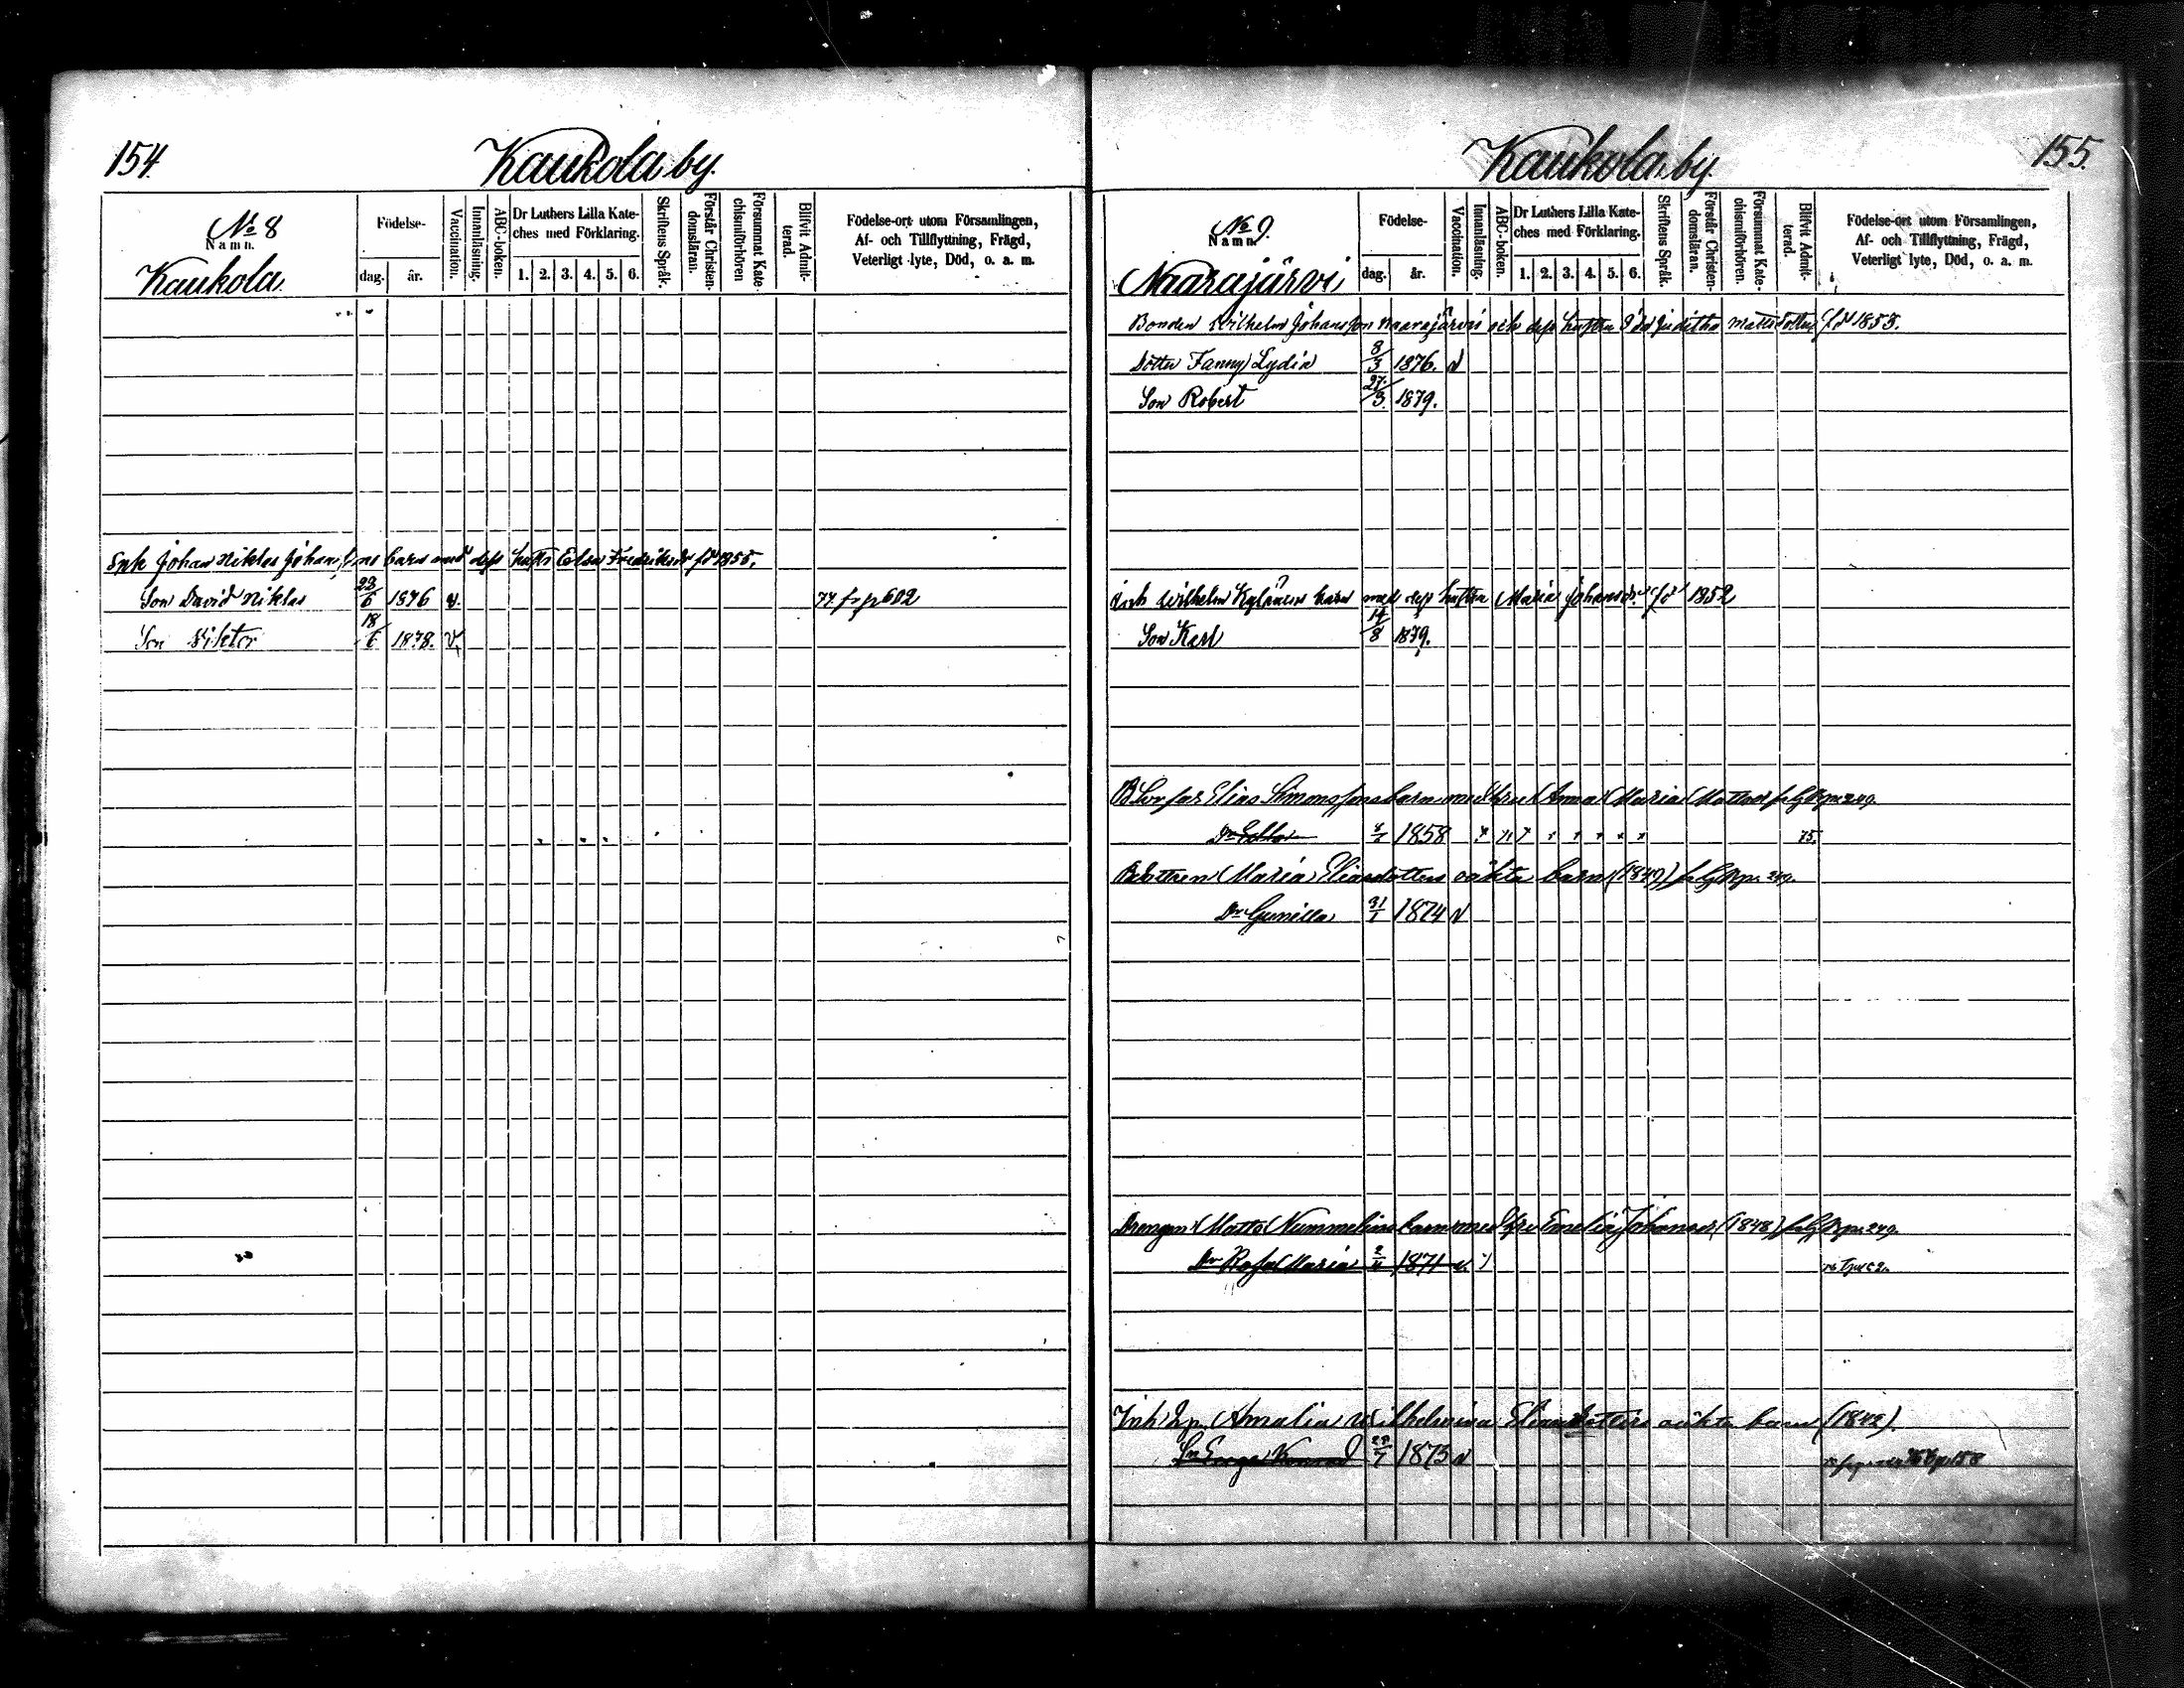 154.
Kaukola by.
No 8
Namn.
Kaukola
Födelse-
dag.
år.
Vaccination.
Innanläsning.
ABC-boken.
Dr Luthers Lilla Kate-
ches med Förklaring.
1. 2. 3. 4. 5. 6.
Skriftens Språk.
Förstår Christen-
domsläran.
Försummat Kate-
chismiförhören
Blifvit Admit-
terad.
Födelse-ort utom Församlingen,
Af- och Tillflyttning, Frägd,
Veterligt lyte, Död, o. a. m.
Johan Niklas Johans barn med dess hustr Elsa Fredriksdr fd 1855.
Son David Niklas 6 1876 v. 77 fr p 602
Son Viktor 18/6 1878. v.
155.
Kaukola by.
No 9.
Namn.
Naarajärvi
Födelse-
dag.
år.
Vaccination.
Innanläsning.
ABC-boken.
Dr Luthers Lilla Kate-
ches med Förklaring.
1. 2. 3. 4. 5. 6.
Skriftens Språk.
Förstår Christen-
domsläran.
Försummat Kate-
chismiförhören.
Blifvit Admit-
terad.
Födelse-ort utom Församlingen,
Af- och Tillflyttning, Frägd,
Veterligt lyte, Död, o. a. m.
Bonden Wilhelm Johansson Naarajärvi och dess hustru Ida Juditha Mattsdotter fd 1855.
Dotter Fanny Lydia 8/3 1876. v
Son Robert 27/3. 1879.
Wilhelm barn med dess hustru Maria Johansdr. fd 1852
Son Karl 14/8 1879.
Elias Simonssons barn med Anna Maria 249.
1858 75.
Maria Eliasdotters oäkta barn (1847) 249.
Dr Gunilla 31/1 1874 v
Drengen Matts Nummelins barn med Emelia Johansdr (1848) 249.
Dr Rosa Maria 2/11 1871 v.
Inh Amalia Wilhelmina Eliasdotters oäkta barn (1842).
Konrad 1875 v 158